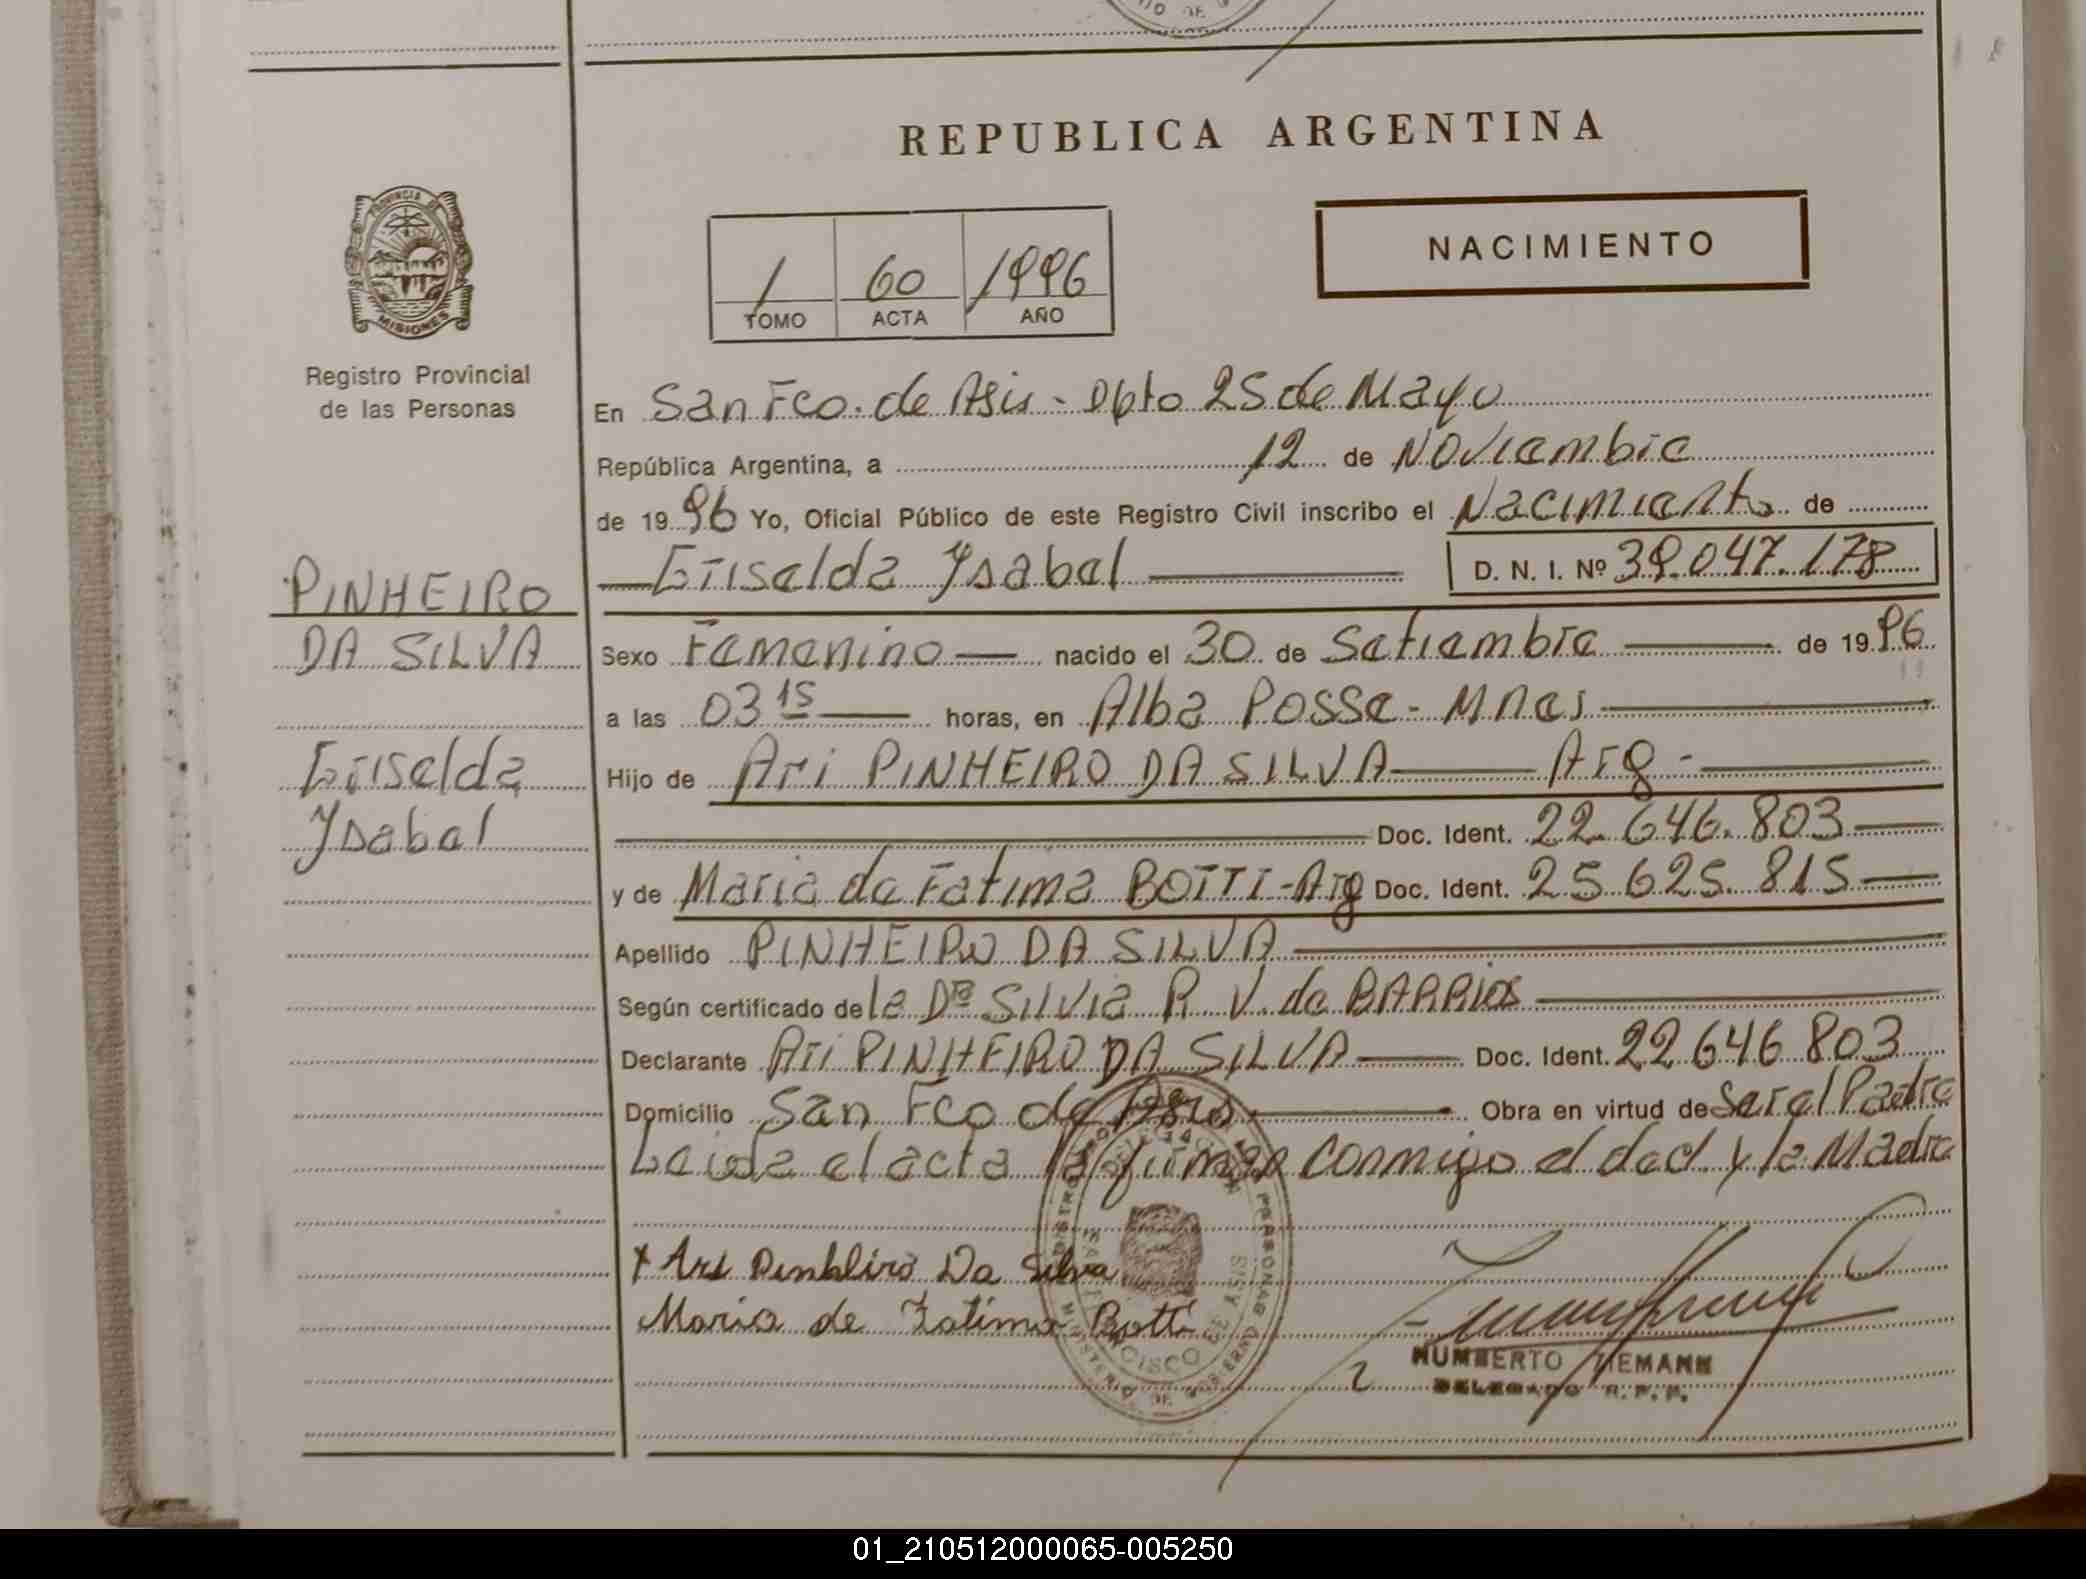 REPUBLICA ARGENTINA
PROVINCIA DE
MISIONES
Registro Provincial
de las Personas
NACIMIENTO
1 60 1996
TOMO ACTA AÑO
En San Fco. de Asis - Dpto 25 de Mayo
República Argentina, a 12 de Noviembre
de 1996 Yo, Oficial Público de este Registro Civil inscribo el Nacimiento de
Griselda Ysabel D. N. I. Nº 39.047.178
PINHEIRO
DA SILVA
Griselda
Ysabel
Sexo Femenino nacido el 30 de Setiembre de 1996
a las 03 15 horas, en Alba Posse - Mnes
Hijo de Ari PINHEIRO DA SILVA Arg -
Doc. Ident. 22.646.803
y de Maria de Fatima BOTTI - Arg Doc. Ident. 25.625.815
Apellido PINHEIRO DA SILVA
Según certificado de la Dra SILVIA R. V. de BARRIOS
Declarante Ari PINHEIRO DA SILVA Doc. Ident. 22 646 803
Domicilio San Fco de Asis Obra en virtud de Ser el Padre
Leida el acta la firman conmigo el decl. y la Madre
x Ari Pinhliro Da Silva
Maria de Fatima Botti
HUMBERTO TIEMANN
DELEGADO R. P. P.
01_210512000065-005250